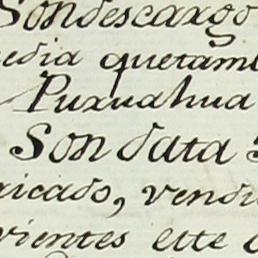 Son descargo
edia quetamb
Puruahua
Son data
icado, vendi
vientes este